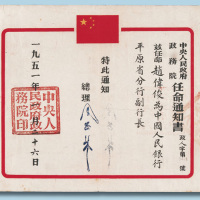 中央人民政府
政務院任命通知書
茲任命趙偉俊為中國人民銀行
平原省分行副行長
特此通知
總理周恩來
一九五一年 月 十六日
中央人
民政府政
務院印